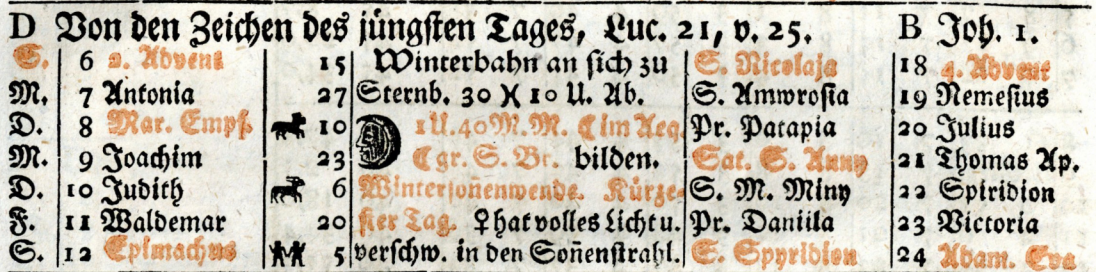 D Von den Zeichen des jüngsten Tages, Luc. 21, v. 25. B Joh. 1.
S. 6 2. Advent 15 Winterbahn an sich zu S. Nicolaja 18 4. Advent
M. 7 Antonia 27 Sternb. 30 )( 10 U. Ab. S. Amwrosia 19 Nemesius
D. 8 Mar. Empf. 10 1 U. 40 M. M. ☾ im Aeq. Pr. Patapia 20 Julius
M. 9 Joachim 23 ☾ gr. S. Br. bilden. Sat. S. Anny 21 Thomas Ap.
D. 10 Judith 6 Wintersoñenwende. Kürze= S. M. Miny 22 Spiridion
F. 11 Waldemar 20 ster Tag. ♀ hat volles Licht u. Pr. Daniila 23 Victoria
S. 12 Epimachus 5 verschw. in den Soñenstrahl. S. Spyridion 24 Adam. Eva